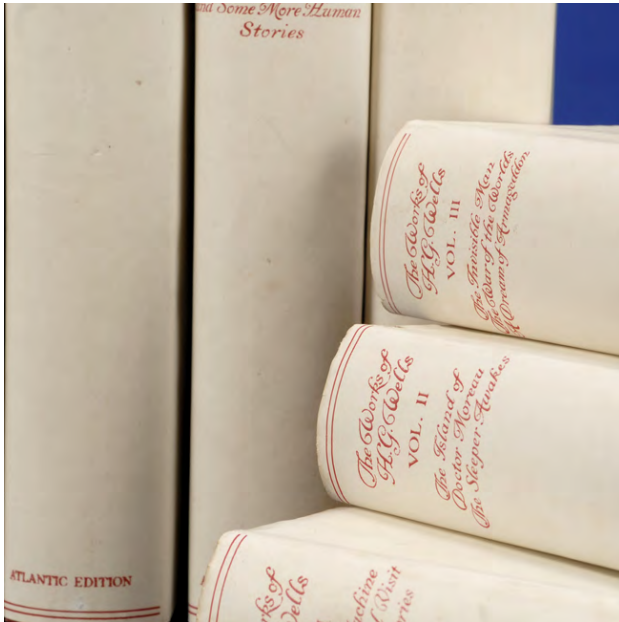 and Some More Human
Stories
ATLANTIC EDITION
The Works of
H.G. Wells
VOL. III
The Invisible Man
The War of the Worlds
A Dream of Armageddon
The Works of
H.G. Wells
VOL. II
The Island of
Doctor Moreau
The Sleeper Awakes
rks of
ells
achine
l Visit
ries